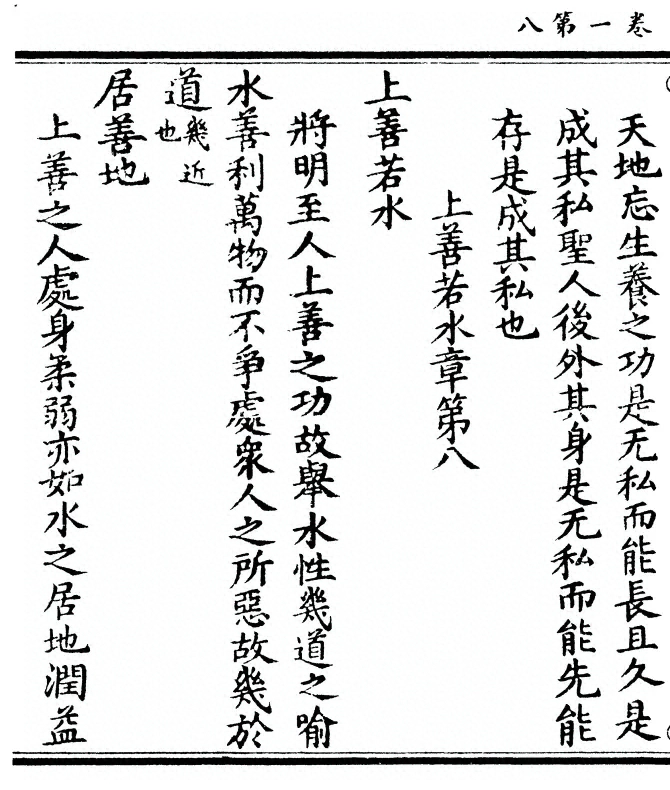 卷一第八
天地忘生養之功是无私而能長且久是
成其私聖人後外其身是无私而能先能
存是成其私也
上善若水章第八
上善若水
將明至人上善之功故舉水性幾道之喻
水善利萬物而不爭處衆人之所惡故幾於
道幾近也
居善地
上善之人處身柔弱亦如水之居地潤益